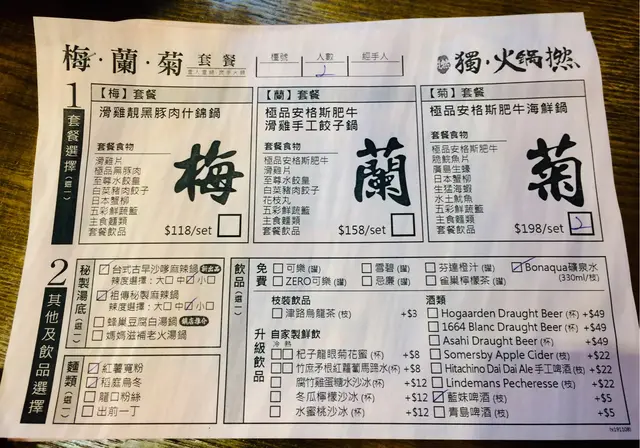 梅·蘭·菊 套餐
檯號
人數
2
經手人
獨·火鍋撚
1 套餐選擇(選一)
【梅】套餐
滑雞靚黑豚肉什錦鍋
套餐食物
滑雞片
極品黑豚肉
至尊水餃皇
白菜豬肉餃子
日本蟹柳
五彩鮮蔬籃
主食麵類
套餐飲品
梅
$118/set
【蘭】套餐
極品安格斯肥牛
滑雞手工餃子鍋
套餐食物
極品安格斯肥牛
滑雞片
至尊水餃皇
白菜豬肉餃子
花枝丸
五彩鮮蔬籃
主食麵類
套餐飲品
蘭
$158/set
【菊】套餐
極品安格斯肥牛海鮮鍋
套餐食物
極品安格斯肥牛
脆鯇魚片
廣島生蠔
日本蟹柳
生猛海蝦
水土魷魚
五彩鮮蔬籃
主食麵類
套餐飲品
菊
$198/set
2
2 其他及飲品選擇
秘製湯底(選一)
台式古早沙嗲麻辣鍋
辣度選擇:大口 中 小口
祖傳秘製麻辣鍋
辣度選擇:大口 中 小口
蜂巢豆腐白湯鍋
媽媽滋補老火湯鍋
麵類(選一)
紅薯寬粉
稻庭烏冬
龍口粉絲
出前一丁
飲品(選一)
免費
可樂(罐)
雪碧(罐)
芬達橙汁(罐)
Bonaqua礦泉水
(330ml/枝)
ZERO可樂(罐)
忌廉(罐)
雀巢檸檬茶(罐)
升級飲品
枝裝飲品
津路烏龍茶(枝) +$3
自家製鮮飲
冷 熱
杞子龍眼菊花蜜(杯) +$8
竹庶矛根紅蘿蔔馬蹄水(杯) +$8
腐竹雞蛋糖水沙冰(杯) +$12
冬瓜檸檬沙冰(杯) +$12
水蜜桃沙冰(杯) +$12
酒類
Hogaarden Draught Beer (杯) +$49
1664 Blanc Draught Beer (杯) +$49
Asahi Draught Beer (杯) +$49
Somersby Apple Cider (枝) +$22
Hitachino Dai Dai Ale 手工啤酒(枝) +$22
Lindemans Pecheresse (枝) +$22
藍妹啤酒(枝) +$5
青島啤酒(枝) +$5